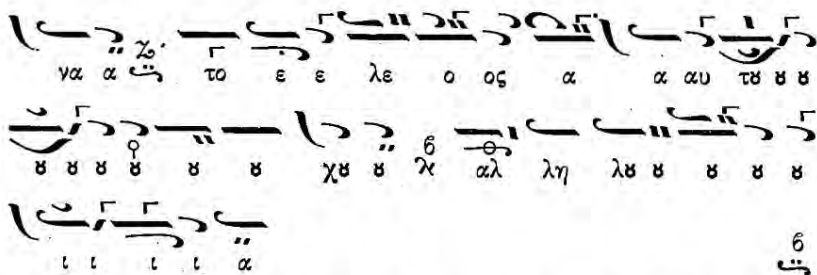 γα α το ε ε λε ο ος α α αυ τȣ ȣ ȣ
ȣ ȣ ȣ ȣ ȣ ȣ χȣ ȣ αλ λη λȣ ȣ ȣ ȣ ȣ
ι ι ι ι α